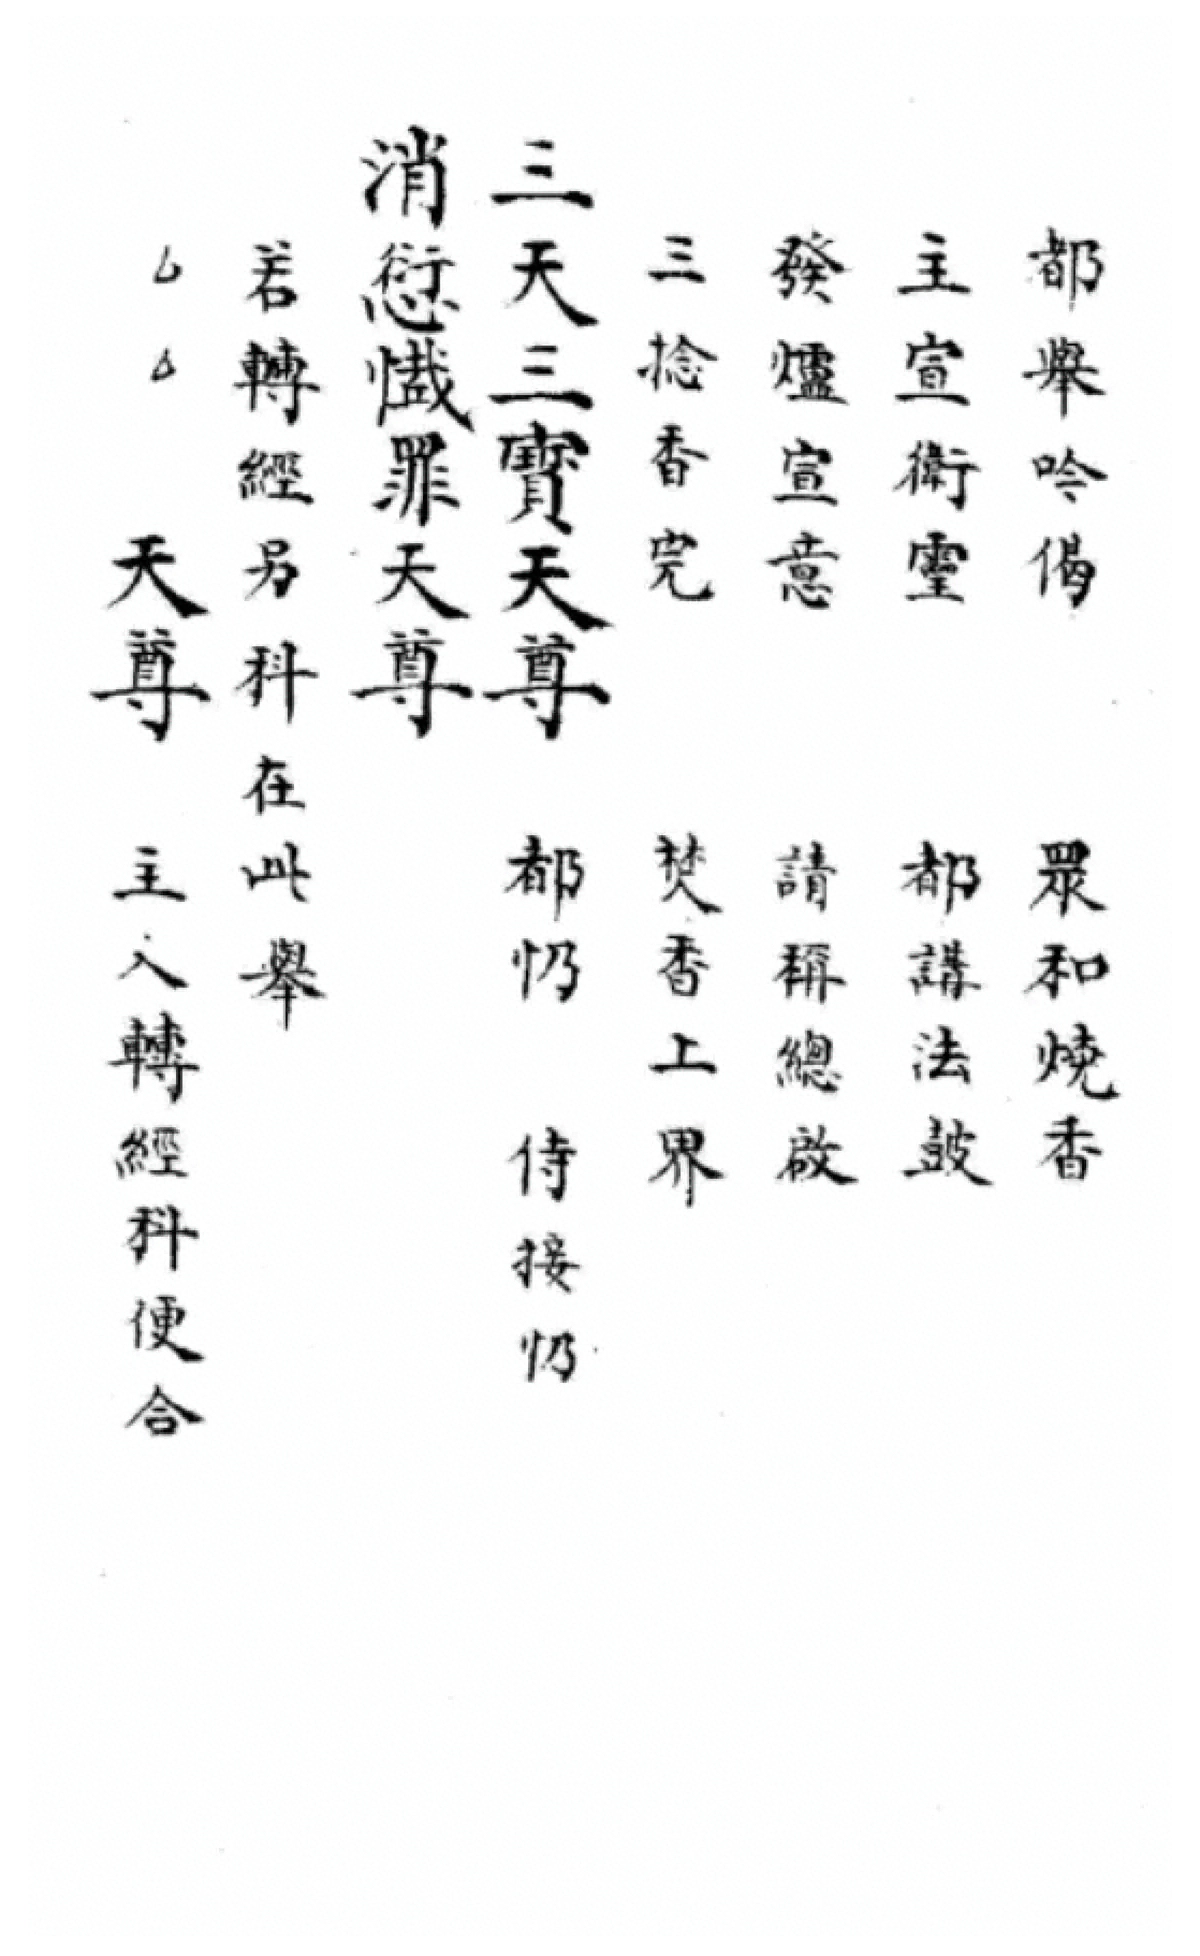 都舉吟偈　眾和燒香
主宣衛靈　都講法鼓
發爐宣意　請稱總啟
三捻香完　焚香上界
三天三寳天尊　都忉　侍接忉
消愆懺罪天尊
若轉經另科在此舉
厶厶天尊　主入轉經科便合